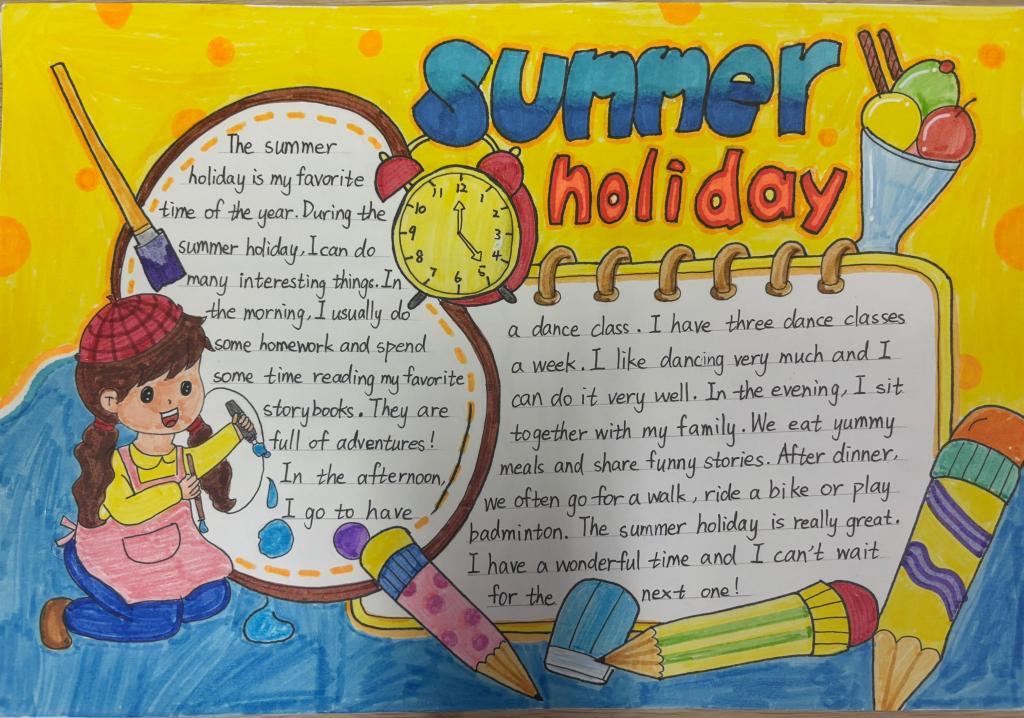 Summer
holiday
The summer
holiday is my favorite
time of the year. During the
summer holiday, I can do
many interesting things. In
the morning, I usually do
some homework and spend
some time reading my favorite
storybooks. They are
full of adventures!
In the afternoon,
I go to have
11 12 1
10 2
9 3
8 4
7 6 5
a dance class. I have three dance classes
a week. I like dancing very much and I
can do it very well. In the evening, I sit
together with my family. We eat yummy
meals and share funny stories. After dinner,
we often go for a walk, ride a bike or play
badminton. The summer holiday is really great.
I have a wonderful time and I can't wait
for the next one!